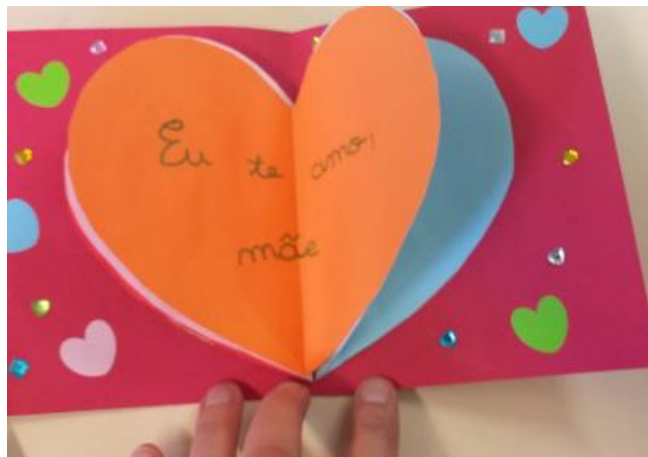 Eu te amo,
mãe